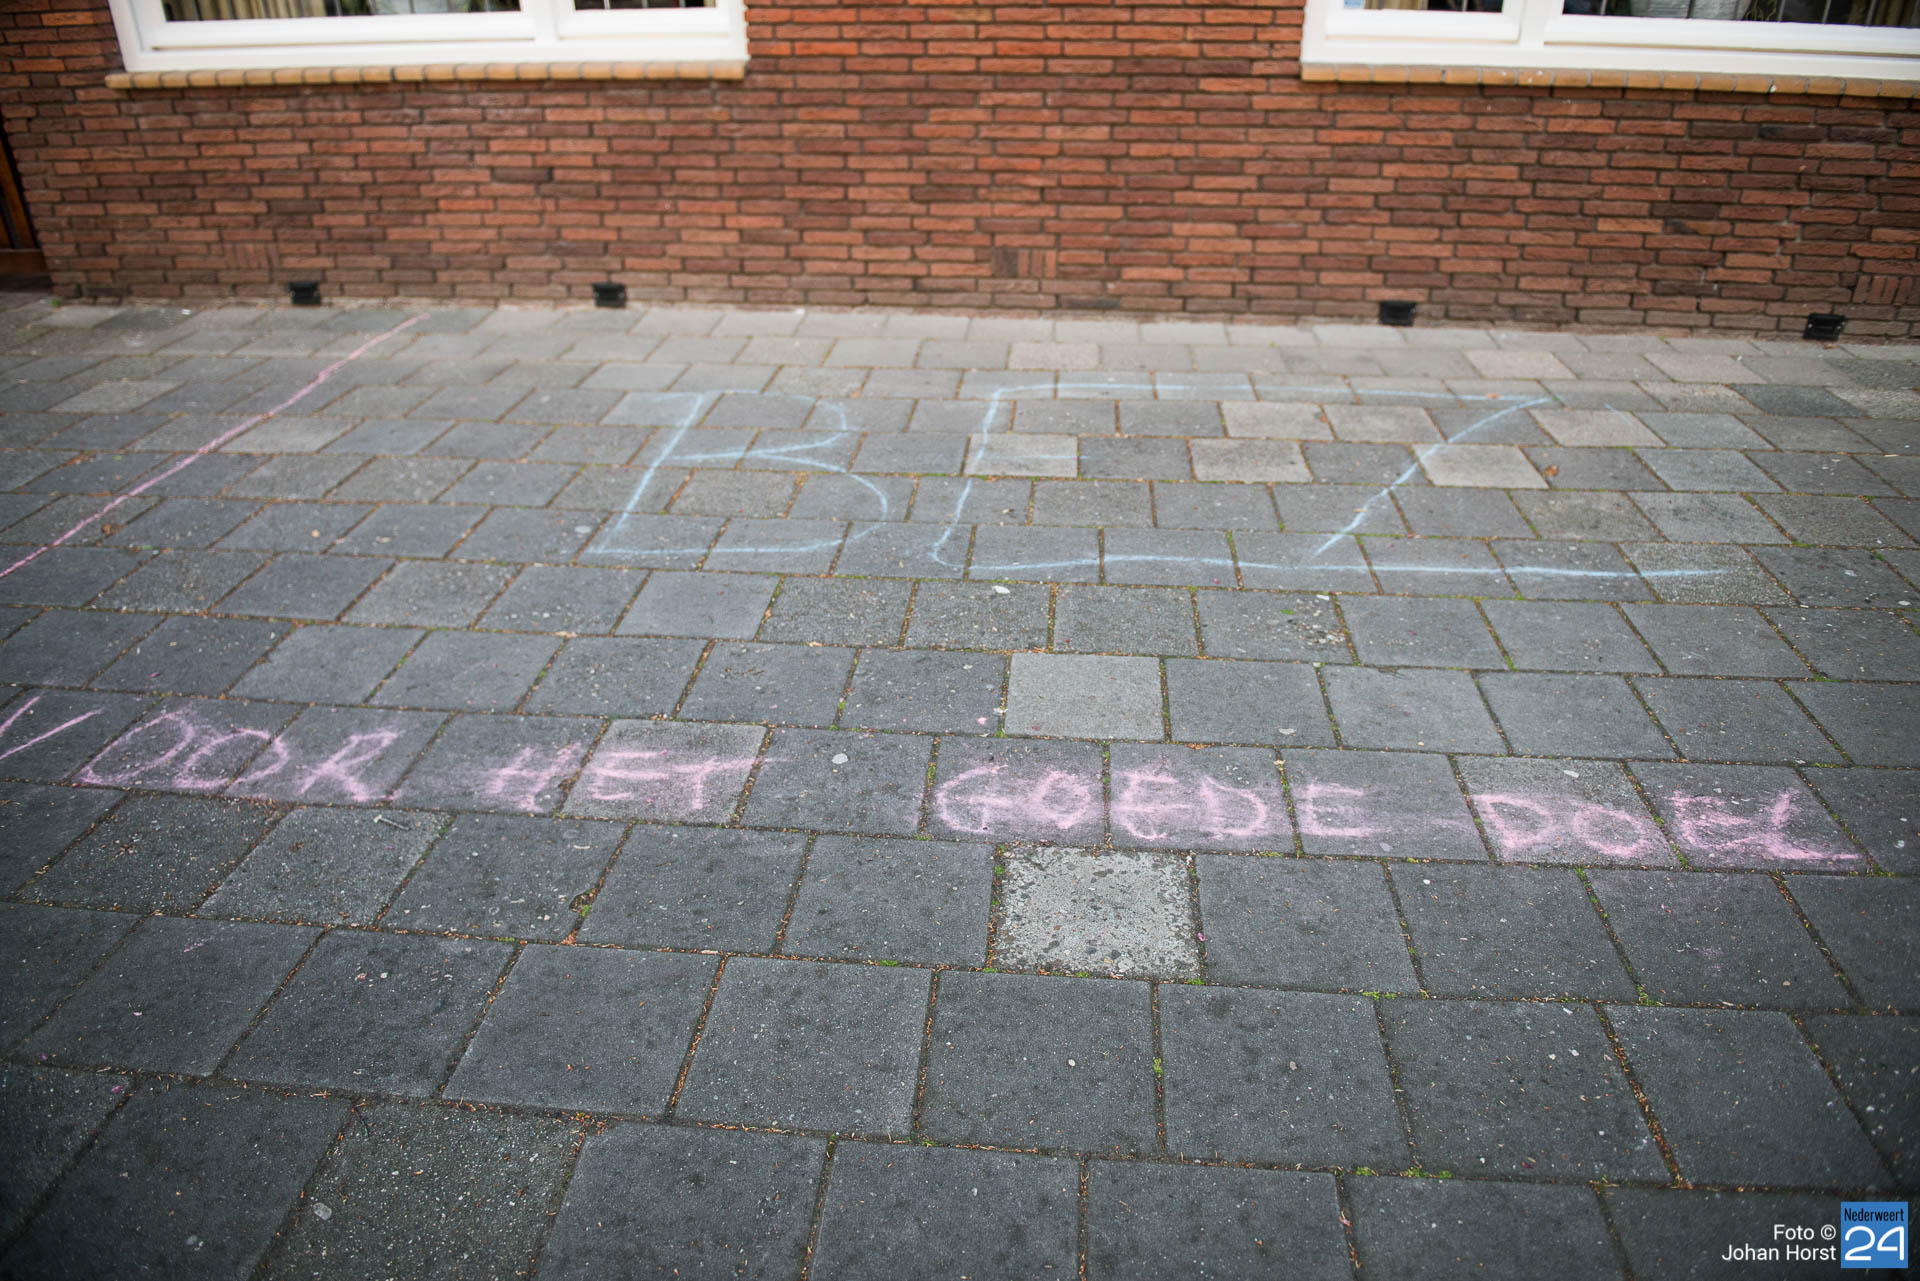 BEZ
VOOR HET GOEDE DOEL
Foto ©
Johan Horst
Nederweert
24